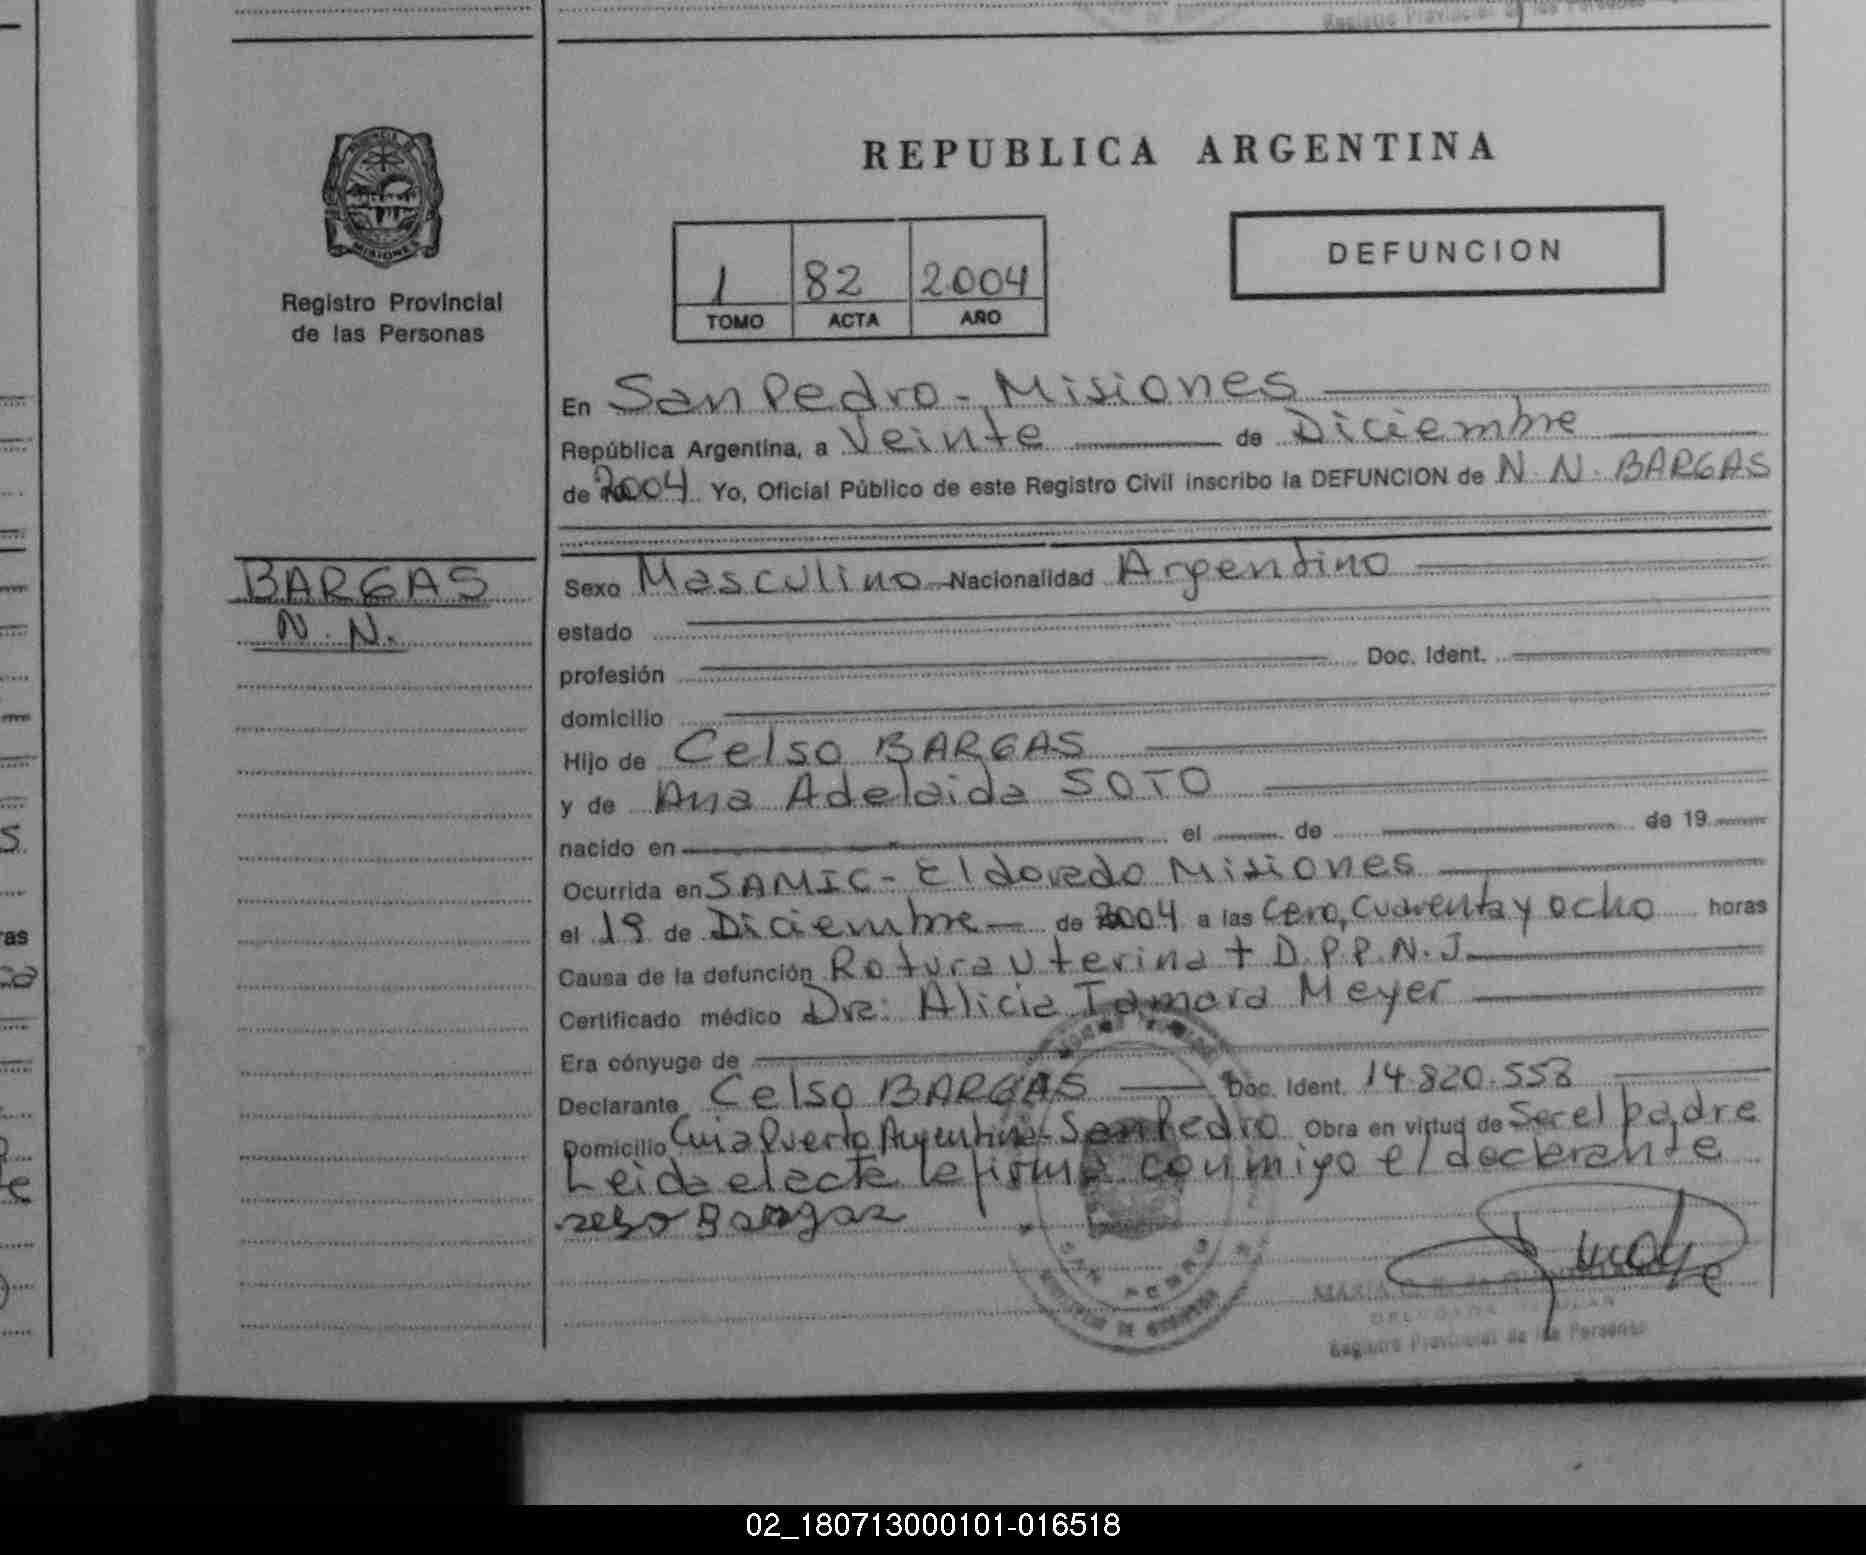 Registro Provincial de las Personas
PROVINCIA DE
MISIONES
Registro Provincial
de las Personas
REPUBLICA ARGENTINA
1 82 2004
TOMO ACTA AÑO
DEFUNCION
En San Pedro - Misiones
República Argentina, a Veinte de Diciembre
de 2004 Yo, Oficial Público de este Registro Civil inscribo la DEFUNCION de N. N. BARGAS
BARGAS
N. N.
Sexo Masculino Nacionalidad Argentino
estado
profesión Doc. Ident.
domicilio
Hijo de Celso BARGAS
y de Ana Adelaida SOTO
nacido en el de de 19
Ocurrida en SAMIC - Eldorado Misiones
el 19 de Diciembre de 2004 a las Cero, Cuarenta y ocho horas
Causa de la defunción Rotura uterina + D.P.P.N.J.
Certificado médico Dra: Alicia Tamara Meyer
Era cónyuge de
Declarante Celso BARGAS Doc. Ident. 14.820.558
Domicilio Puerto Argentino - San Pedro Obra en virtud de Ser el padre
Leida el acta la firma conmigo el declarante
Bargas
SAN PEDRO
MINISTERIO DE GOBIERNO
MARIA
DELEGADA TITULAR
Registro Provincial de las Personas
02_180713000101-016518